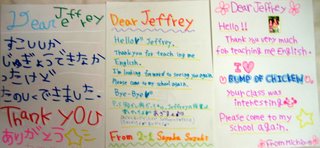 Dear Jeffrey
すこししか
じゅぎょうできなか
ったけど
たのしくできました。
THANK YOU
ありがとう
Dear Jeffrey
Hello♡ Jeffrey.
Thank you for teaching me
English.
I'm looking forward to seeing you again.
Please come to my school again.
Bye-Bye♡
From 2-1 Sayaka Suzuki
Dear Jeffrey
Hello!!
Thank you very much
for teaching me English.
I ♡
BUMP OF CHICKEN
your class was
interesting
Please come to my
school again.
From Michiho